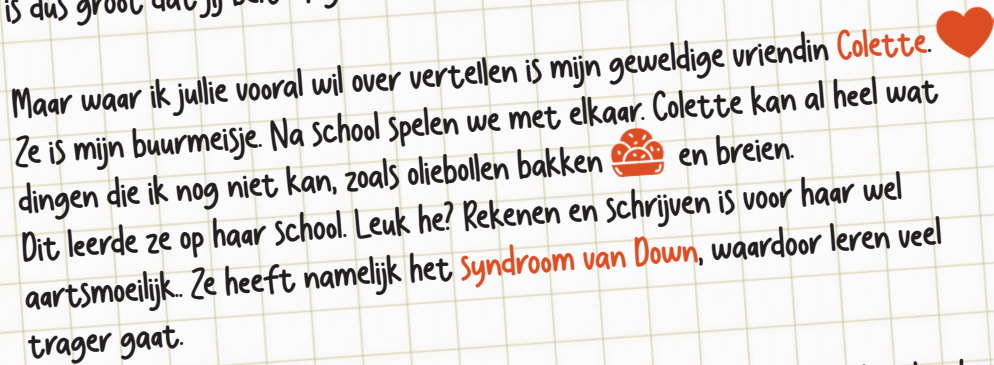 is dus groot dat jij
Maar waar ik jullie vooral wil over vertellen is mijn geweldige vriendin Colette.
Ze is mijn buurmeisje. Na school spelen we met elkaar. Colette kan al heel wat
dingen die ik nog niet kan, zoals oliebollen bakken en breien.
Dit leerde ze op haar school. Leuk he? Rekenen en schrijven is voor haar wel
aartsmoeilijk.. Ze heeft namelijk het syndroom van Down, waardoor leren veel
trager gaat.